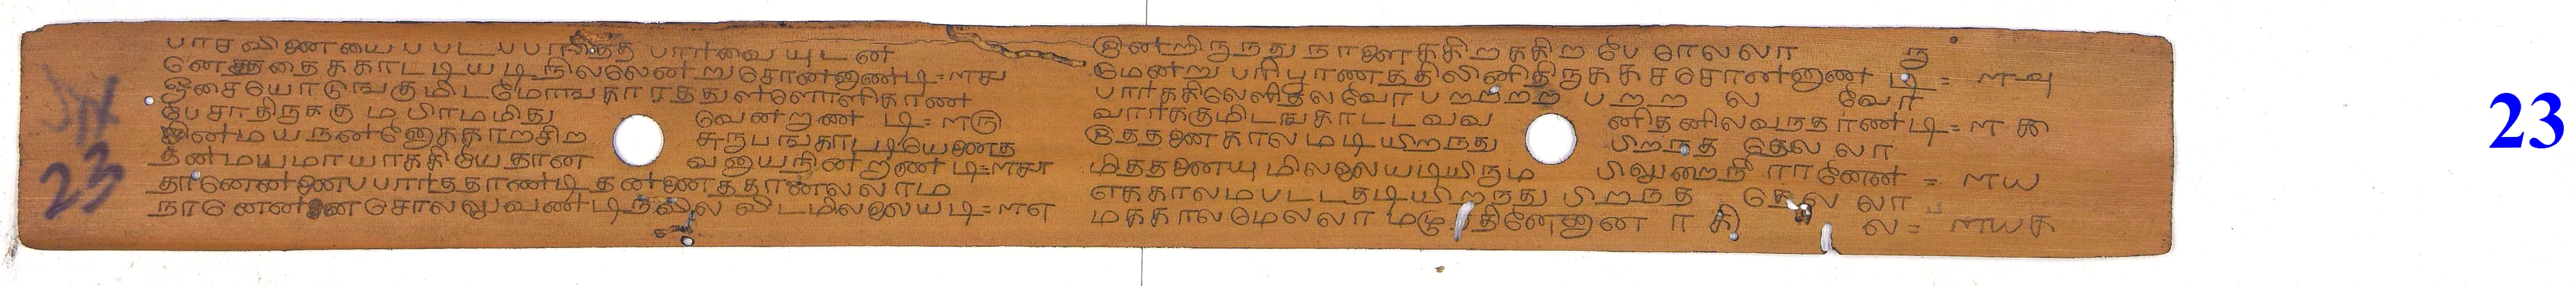 பாச விணையை ப படட ப பாரதத பார்வை யுடன்
னெததைக காட டிய டி நிலலென் று சொன்னாண்டி = ள௪
ஓசையோடுஙகு மிடமோஙகா ரத துள்ளொளிகாண
பேசாதிருககு ம பிரமமிது வென்றாண டி = ள௫
சினமயநன்னெககாறசிற சுருபஙகாட டியேனைத
தனமயமாயாககியே தான வனுயநின்றாண டி = ள௬
தானென்னைப பார்த தாண்டி தன்னைததானலலாம
நானென்ன சொலலுவண் டி நலல விடமிலலையடி = ள௭
இன்றிருநது நாளைககிறககிற பே ரெலலா ரு
மென்று பரிபூரணததிலினிதிருககச சொன்னாண டி = ள௮
பார்ககிலெளிதலவோ பறறறற பறற ல வோ
வார்ககுமிடஙகாட டவவ னிதனிலவநதாண்டி = ள௯
இததனை காலமடியிறநது பிறநத தெலலா
மிததனையு மிலலையடியிரும பிலுறைநீ ரானேன் = ள௰
எககாலமபடடதடியிறநது பிறநத தெலலா
மககாலமெலலா மழிநதினேனென ா கி ல = ள௰௧
23
23